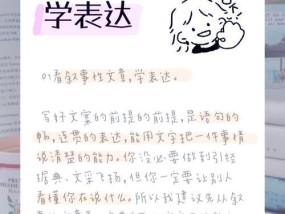 学表达
01看叙事性文章,学表达。
写好文案的前提的前提,是语句的
畅,连贯的表达,能用文字把一件事情
说清楚的能力。你没必要做到引经
据典,文采飞扬,但你一定要让别人
看懂你在说什么。所以我建议先从叙